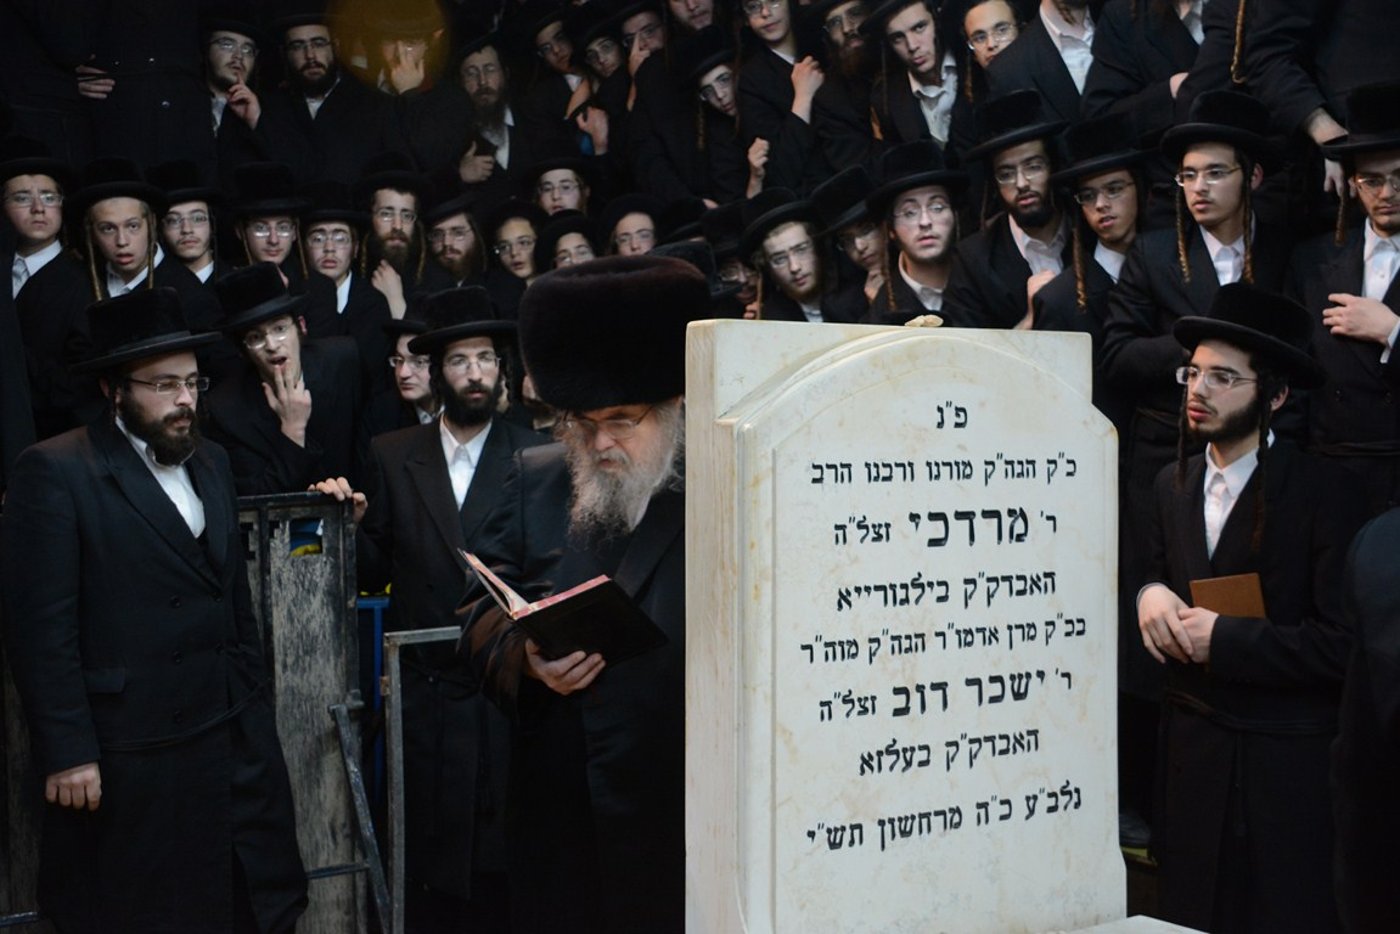 פ"נ
כ"ק הגה"ק מורנו ורבנו הרב
ר' מרדכי זצל"ה
האבדק"ק בילגורייא
בכ"ק מרן אדמו"ר הגה"ק מוה"ר
ר' ישכר דוב זצל"ה
האבדק"ק בעלזא
נלב"ע כ"ה מרחשון תש"י